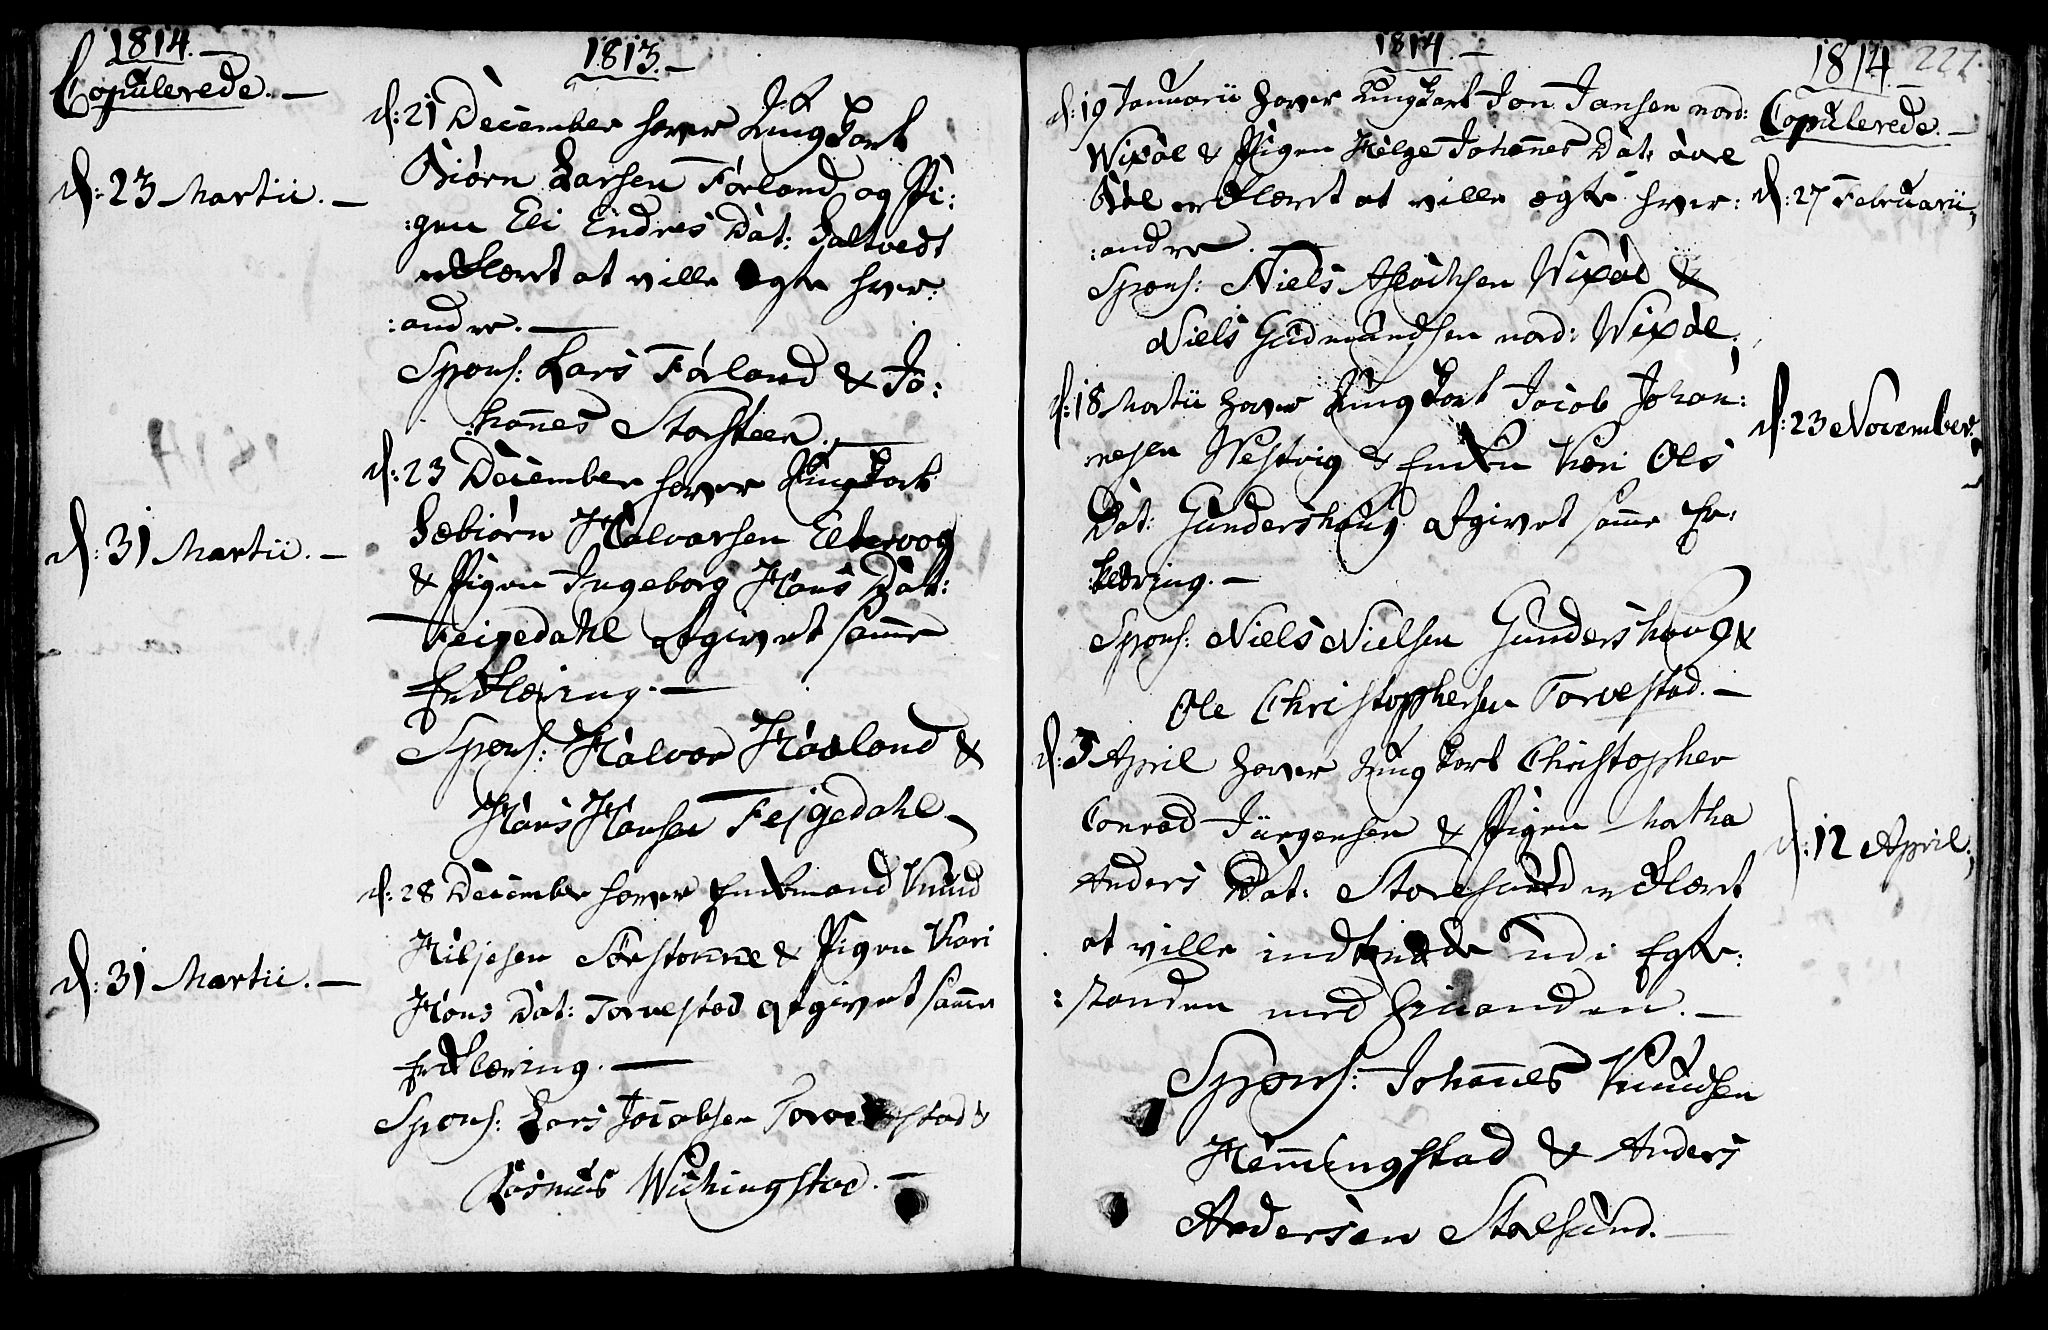 1814.
Copulerede.
d: 23 Martii.
d: 31 Martii.
d: 31 Martii.
1813.
d: 21 December haver Ungkarl
Biørn Larsen Førland og Pi:
:gen Eli Endres Dat: Saltvedt
erklæret at ville egte hver:
:andre.
Spons: Lars Førland & Jo:
:hannes Storsteen.
d: 23 December haver Ungkarl
Sæbiørn Halvorsen Eltervog
& Pigen Ingeborg Hans Dat:
Feigedahl afgivet samme
Erklæring.
Spons: Halvor Haaland &
Hans Hansen Fejgedahl
d: 28 December haver Enkemand Knud
Sørstonne & Pigen Kari
Hans Dat: Torvestad afgivet samme
Erklæring.
Spons: Lars Jacobsen Torvestad &
Rasmus Wichingstad.
1814.
d: 19 Januarii haver Ungkarl Jon Jansen nord:
Wixøl & Pigen Helge Johannes Dat: øvre
Bøl erklæret at ville egte hver:
:andre.
Spons: Niels Aslaichsen Wixøl &
Niels Gudmundsen nord: Wixøl.
d: 18 Martii haver Ungkarl Jacob Johan:
nesen Westvig & Enken Kari Ols
Dat: Gundershaug afgivet samme Er:
:klæring.
Spons: Niels Nielsen Gundershaug &
Ole Christophersen Torvestad.
d: 3 April haver Ungkarl Christopher
Conrad Jürgensen & Pigen Martha
Anders Dat: Storesund erklæret
at ville indtræde udi Egte:
:standen med hinanden.
Spons: Johannes Knudsen
Hemmingstad & Anders
Andersen Storesund.
1814
227.
Copulerede.
d: 27 Februarii
d: 23 November.
d: 12 April.